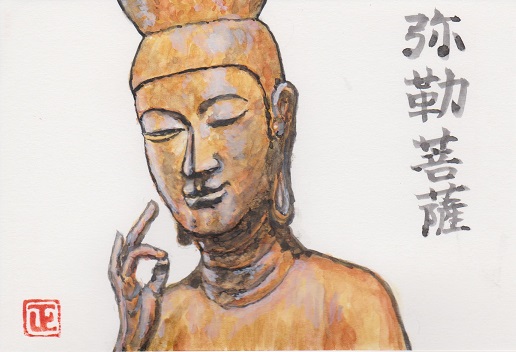 弥勒菩薩
正